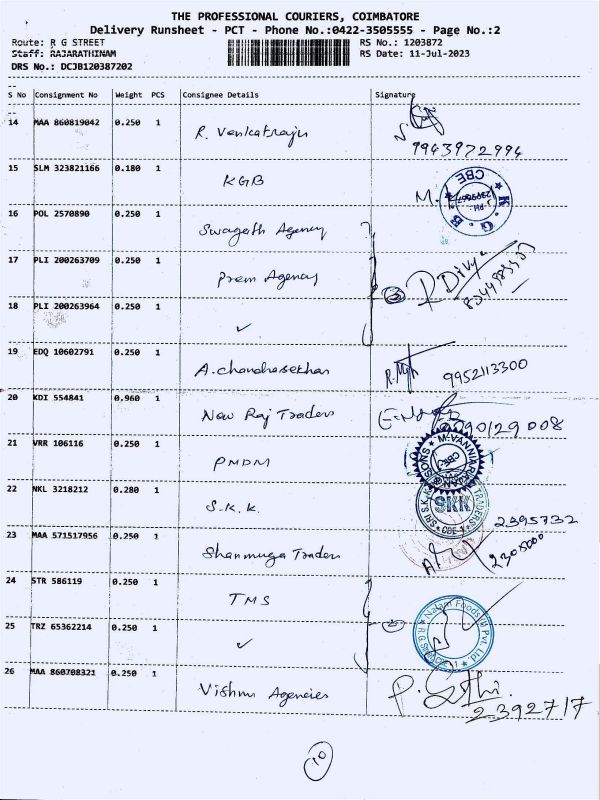 THE PROFESSIONAL COURIERS, COIMBATORE
Delivery Runsheet - PCT - Phone No.:0422-3505555 - Page No.:2
Route: R G STREET RS No.: 1203872
Staff: RAJARATHINAM RS Date: 11-Jul-2023
DRS No.: DCJB120387202
S No Consignment No Weight PCS Consignee Details Signature
14 MAA 860819042 0.250 1 R. Venkatraju
9943972994
15 SLM 323821166 0.180 1 KGB M.
K.G.B CBE
16 POL 2570890 0.250 1 Swagath Agency
17 PLI 200263709 0.250 1 Prem Agency ③ R Divya
18 PLI 200263964 0.250 1 ✓
19 EDQ 10602791 0.250 1 A. chandrasekhar 9952113300
20 KDI 554841 0.960 1 New Raj Traders
21 VRR 106116 0.250 1 PMDM
22 NKL 3218212 0.280 1 S.K.K. SKK
2395732
23 MAA 571517956 0.250 1 Shanmuga Traders
24 STR 586119 0.250 1 TMS
25 TRZ 65362214 0.250 1 ✓
26 MAA 860708321 0.250 1 Vishnu Agencies
2392717
10